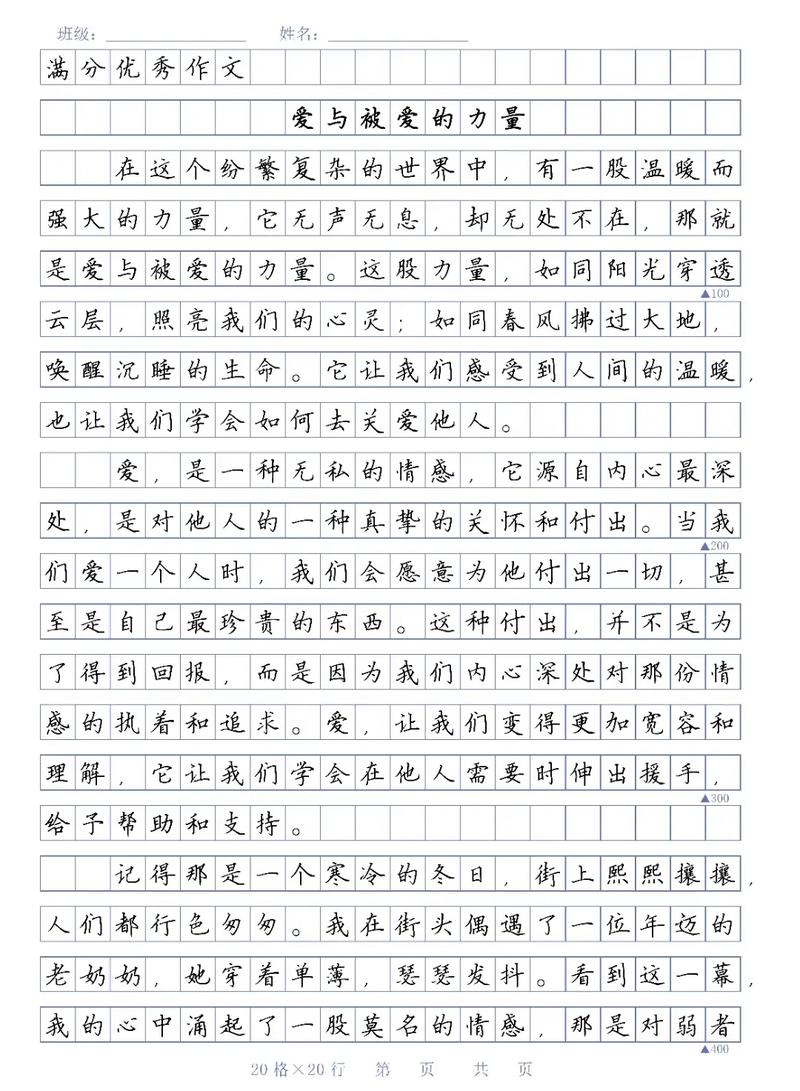 班级：________________ 姓名：________________
满分优秀作文
爱与被爱的力量
在这个纷繁复杂的世界中，有一股温暖而
强大的力量，它无声无息，却无处不在，那就
是爱与被爱的力量。这股力量，如同阳光穿透
▲100
云层，照亮我们的心灵；如同春风拂过大地，
唤醒沉睡的生命。它让我们感受到人间的温暖，
也让我们学会如何去关爱他人。
爱，是一种无私的情感，它源自内心最深
处，是对他人的一种真挚的关怀和付出。当我
▲200
们爱一个人时，我们会愿意为他付出一切，甚
至是自己最珍贵的东西。这种付出，并不是为
了得到回报，而是因为我们内心深处对那份情
感的执着和追求。爱，让我们变得更加宽容和
理解，它让我们学会在他人需要时伸出援手，
▲300
给予帮助和支持。
记得那是一个寒冷的冬日，街上熙熙攘攘，
人们都行色匆匆。我在街头偶遇了一位年迈的
老奶奶，她穿着单薄，瑟瑟发抖。看到这一幕，
我的心中涌起了一股莫名的情感，那是对弱者
▲400
20格×20行 第 页 共 页